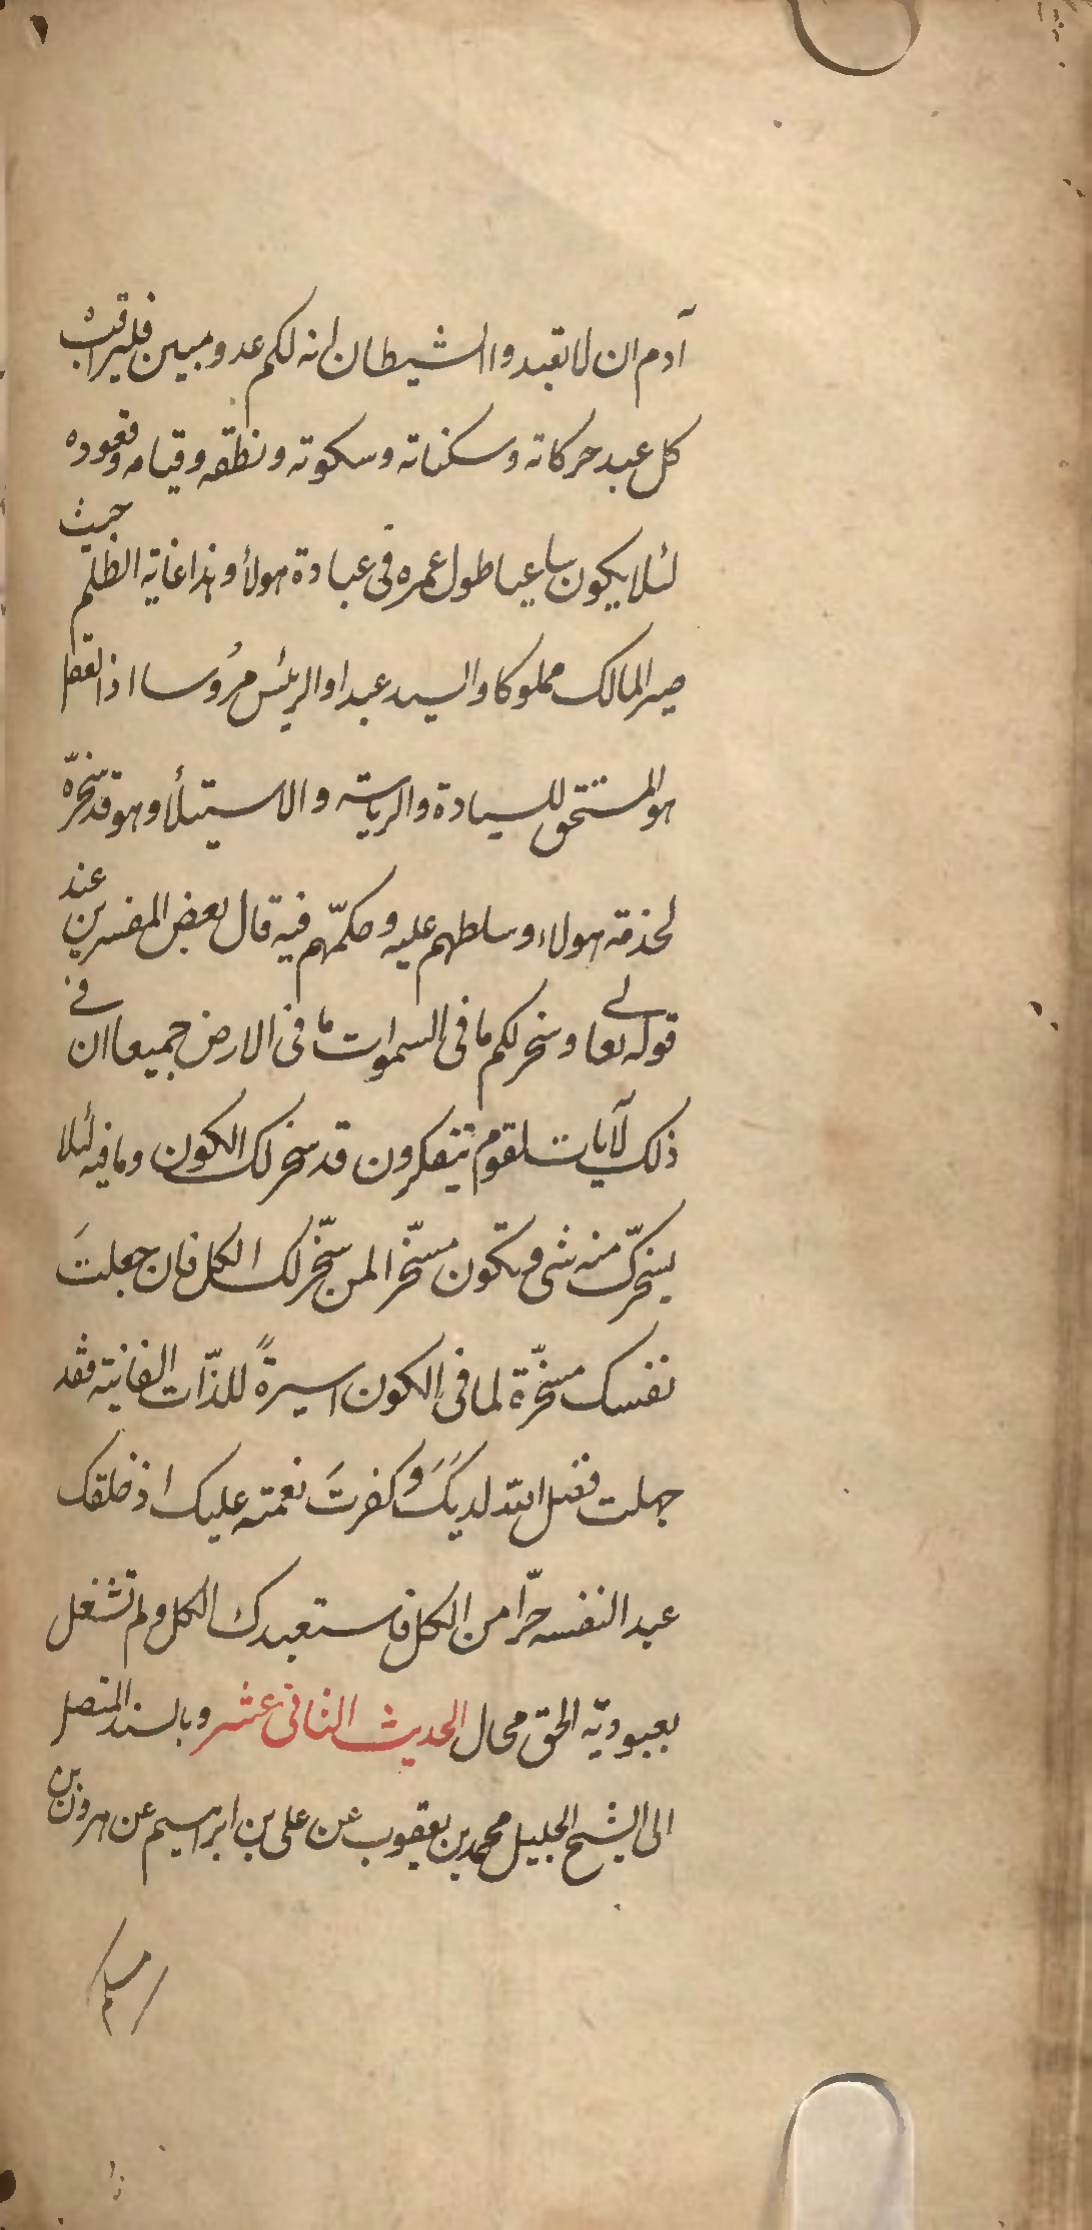 آدم ان لا تعبدوا الشيطان انه لكم عدو مبين فليراقب
كل عبد حركاته وسكناته وسكوته ونطقه وقيامه وقعوده
لئلا يكون ساعيا طول عمره فى عبادة هولاء وهذا غاية الظلم حيث
صير المالك مملوكا والسيد عبدا والرئيس مرُوسا اذ العقل
هو المستحق للسيادة والرياسته والاستيلأ وهو قد سخرّه
لخدمة هولاء وسلطهم عليه وحكمّهم فيه قال بعض المفسرين عند
قوله تعالى وسخر لكم ما فى السموات ما فى الارض جميعا ان فے
ذلك لآيات لقوم يتفكرون قد سخر لك الكون وما فيه لئلا
يسخرّك منه شى وتكون مسخّرا لمن سخّر لك الكل فان جعلتَ
نفسك مسخّرة لما فى الكون اسيرةً للذّات الفانية فقد
جهلت فضل الله لديكَ وكفرتَ نعمته عليك اذ خلقك
عبدا لنفسه حرّا من الكل فاستعبدك الكل ولم تشغل
بعبوديّة الحق محال الحديث الثانى عشر وبالسند المتصل
الى الشيخ الجليل محمد بن يعقوب عن على بن ابراهيم عن هرون بن
مسلم